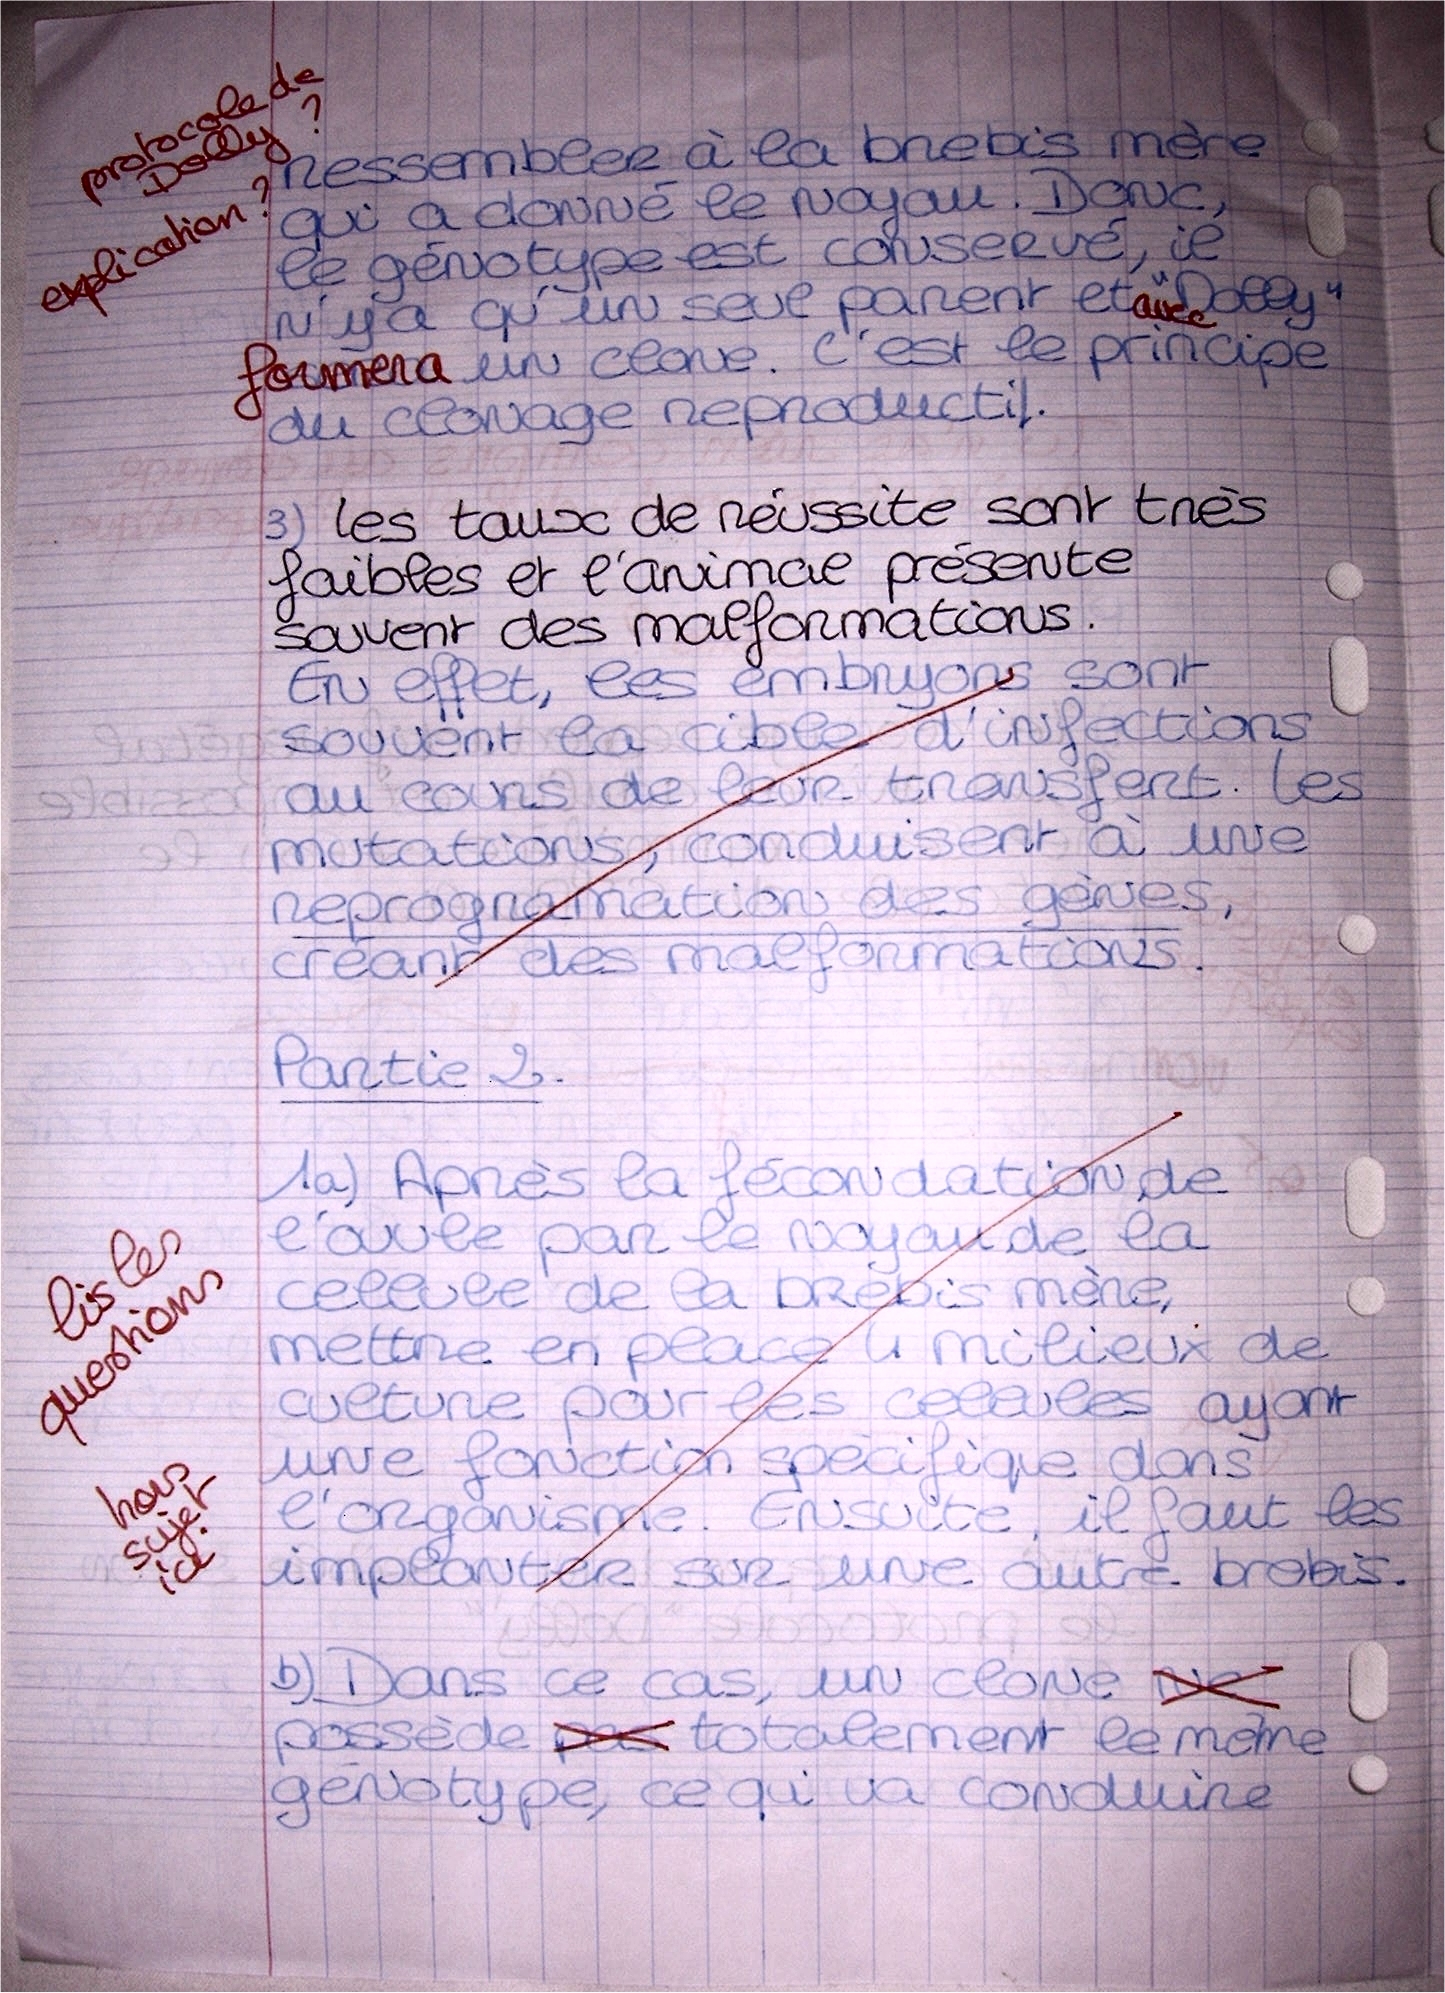 protocole de
Dolly ?
explication ?
ressembler à la brebis mère
qui a donné le noyau. Donc,
le génotype est conservé, il
n'y a qu'un seul parent et avec "Dolly"
formera un clone. C'est le principe
du clonage reproductif.
3) les taux de réussite sont très
faibles et l'animal présente
souvent des malformations.
En effet, les embryons sont
souvent la cible d'infections
au cours de leur transfert. Les
mutations, conduisent à une
reprogramation des gènes,
créant des malformations.
Partie 2.
1a) Après la fécondation de
l'ovule par le noyau de la
cellule de la brebis mère,
mettre en place 4 milieux de
culture pour les cellules ayant
une fonction spécifique dans
l'organisme. Ensuite, il faut les
implanter sur une autre brebis.
lis les
questions
hors
sujet
ici
b) Dans ce cas, un clone ne
possède pas totalement le même
génotype, ce qui va conduire